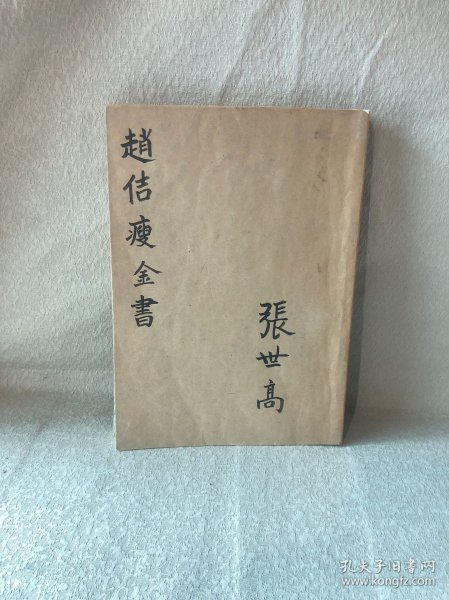 趙佶瘦金書
張世高
孔夫子旧书网
www.kongfz.com